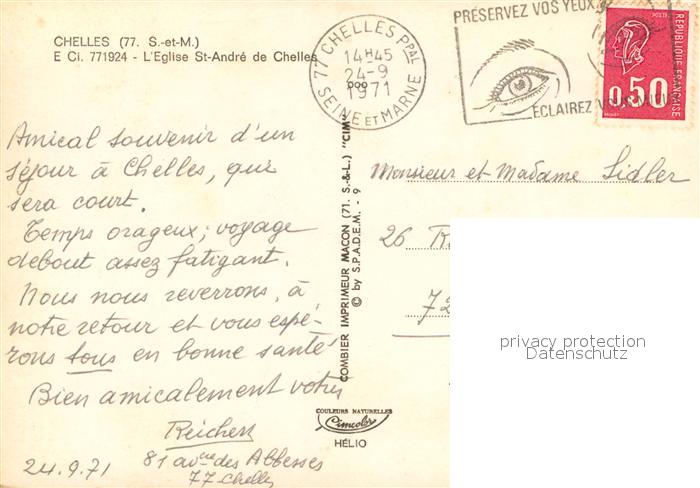 CHELLES (77. S.-et-M.)
E Ci. 771924 - L'Eglise St-André de Chelles
77 CHELLES Ppal
14H45
24-9
1971
SEINE ET MARNE
PRÉSERVEZ VOS YEUX
ÉCLAIREZ
POSTES
RÉPUBLIQUE FRANÇAISE
0,50
Amical souvenir d'un
séjour à Chelles, qui
sera court.
Temps orageux; voyage
debout assez fatigant.
Nous nous reverrons, à
notre retour et vous espé-
rons tous en bonne santé
Bien amicalement votre
Reichert
24.9.71
81 avcue des Abbesses
77 Chelles
COMBIER IMPRIMEUR MACON (71. S.-&-L.) "CIM"
© by S.P.A.D.E.M. - 9
COULEURS NATURELLES
Cimcolor
HÉLIO
Monsieur et Madame Sidler
26 R
72
privacy protection
Datenschutz